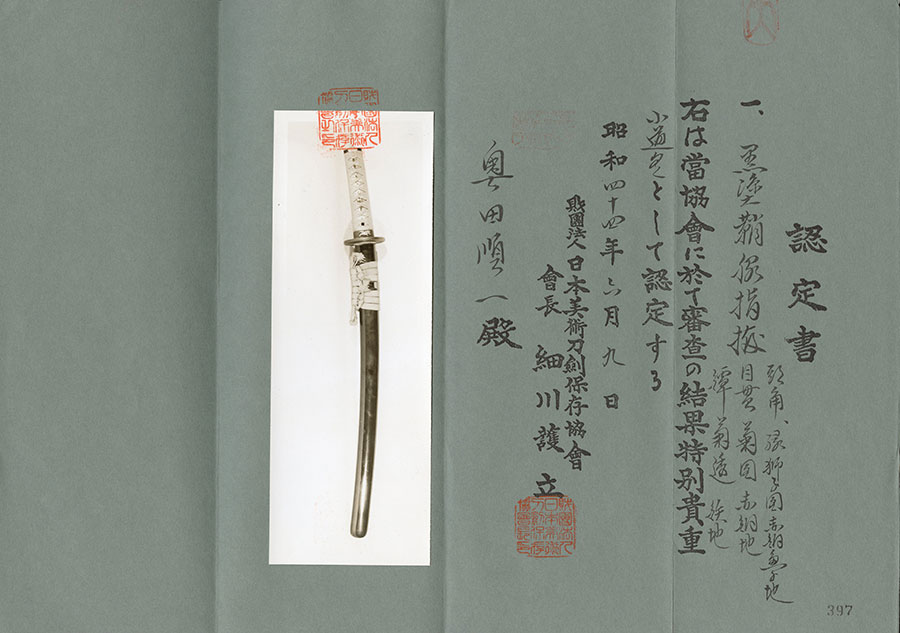 認定書
一、黒塗鞘脇指拵
頭角、縁獅子図赤銅魚子地
目貫菊図赤銅地
鐔菊透鉄地
右は當協會に於て審査の結果特別貴重
小道具として認定する
昭和四十四年六月九日
財團法人日本美術刀剣保存協會
會長 細川護立
奥田順一殿
397